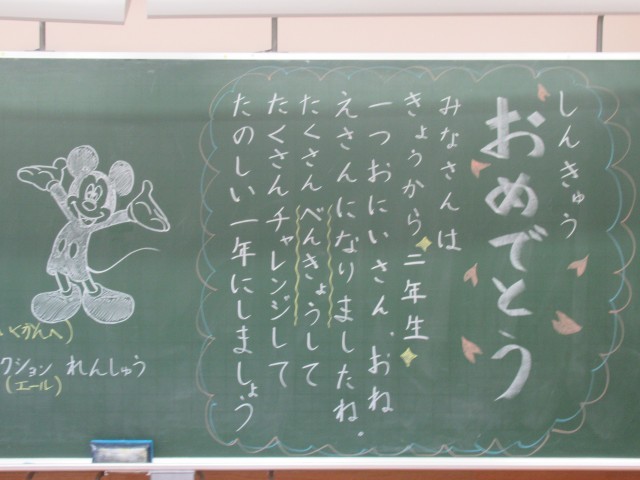 しんきゅう
おめでとう
みなさんは
きょうから二年生
一つおにいさん、おね
えさんになりましたね。
たくさんべんきょうして
たくさんチャレンジして
たのしい一年にしましょう
いくかんへ)
クション れんしゅう
(エール)